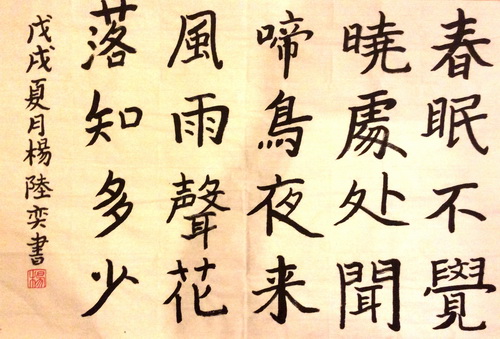 春眠不覺
暁處处聞
啼鳥夜来
風雨聲花
落知多少
戊戌夏月楊陸奕書